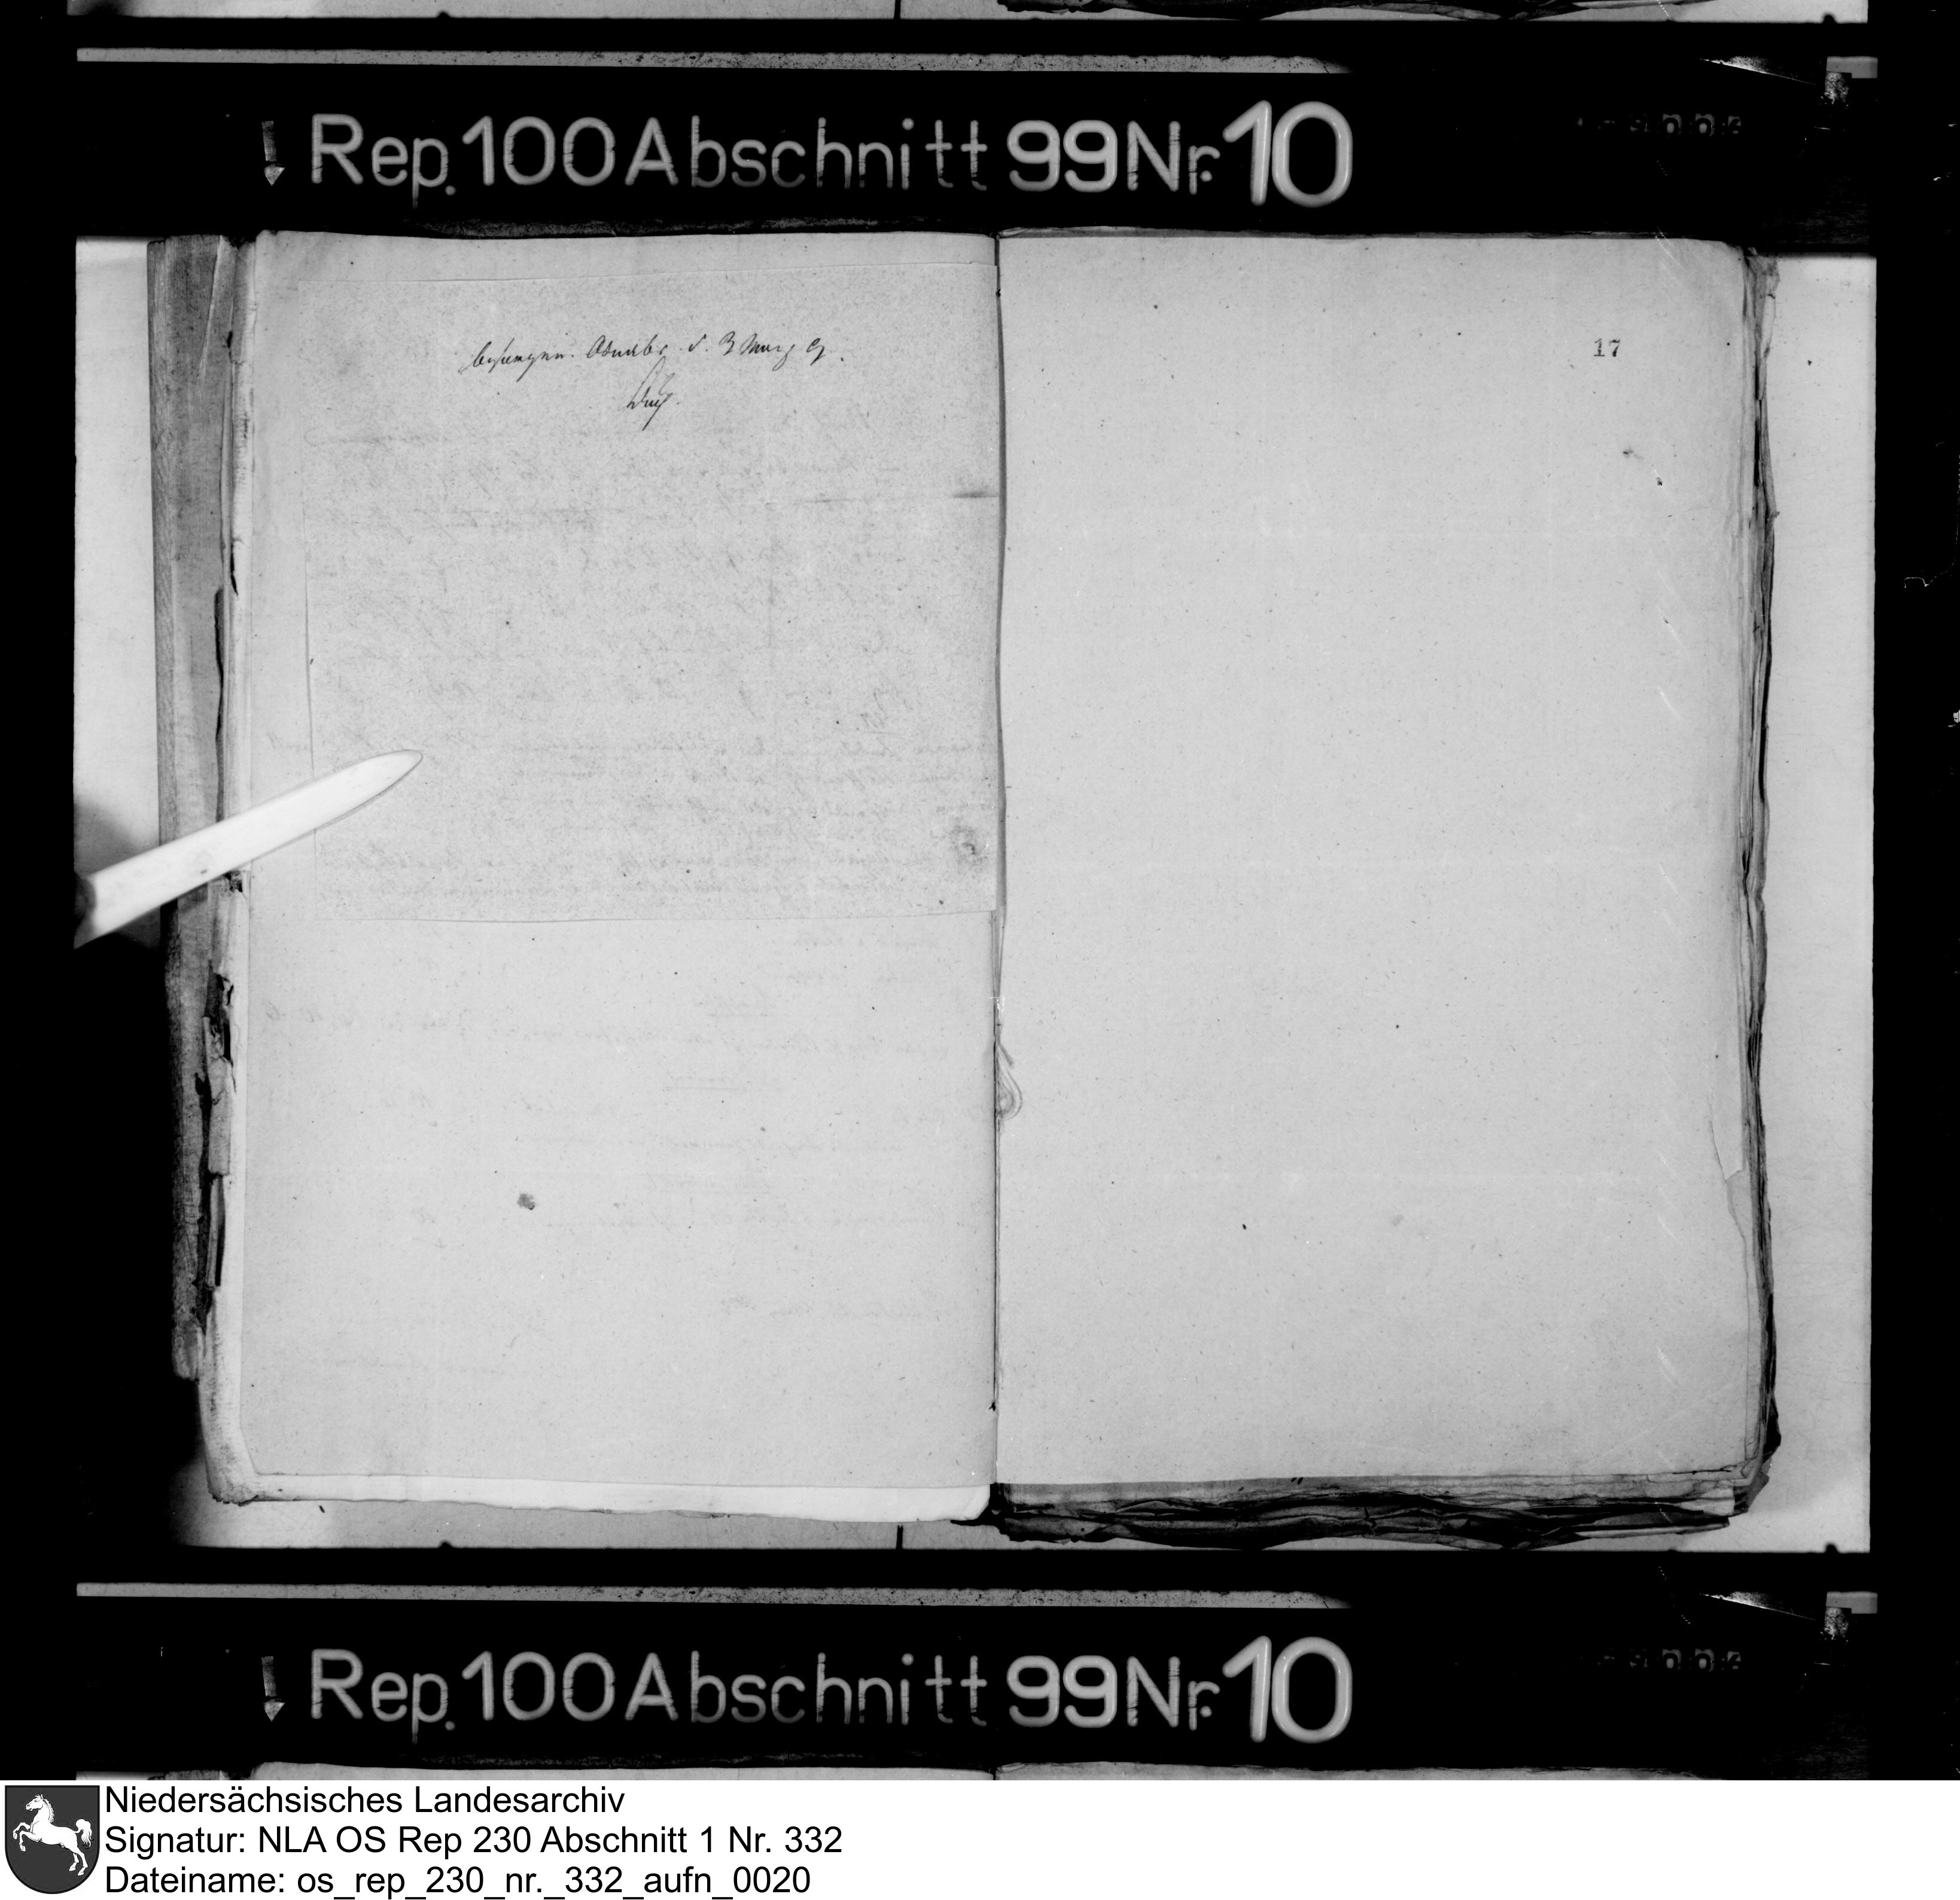 Rep. 100 Abschnitt 99 Nr. 10
Osnabr. d. 3 März
17
Rep. 100 Abschnitt 99 Nr. 10
Niedersächsisches Landesarchiv
Signatur: NLA OS Rep 230 Abschnitt 1 Nr. 332
Dateiname: os_rep_230_nr._332_aufn_0020